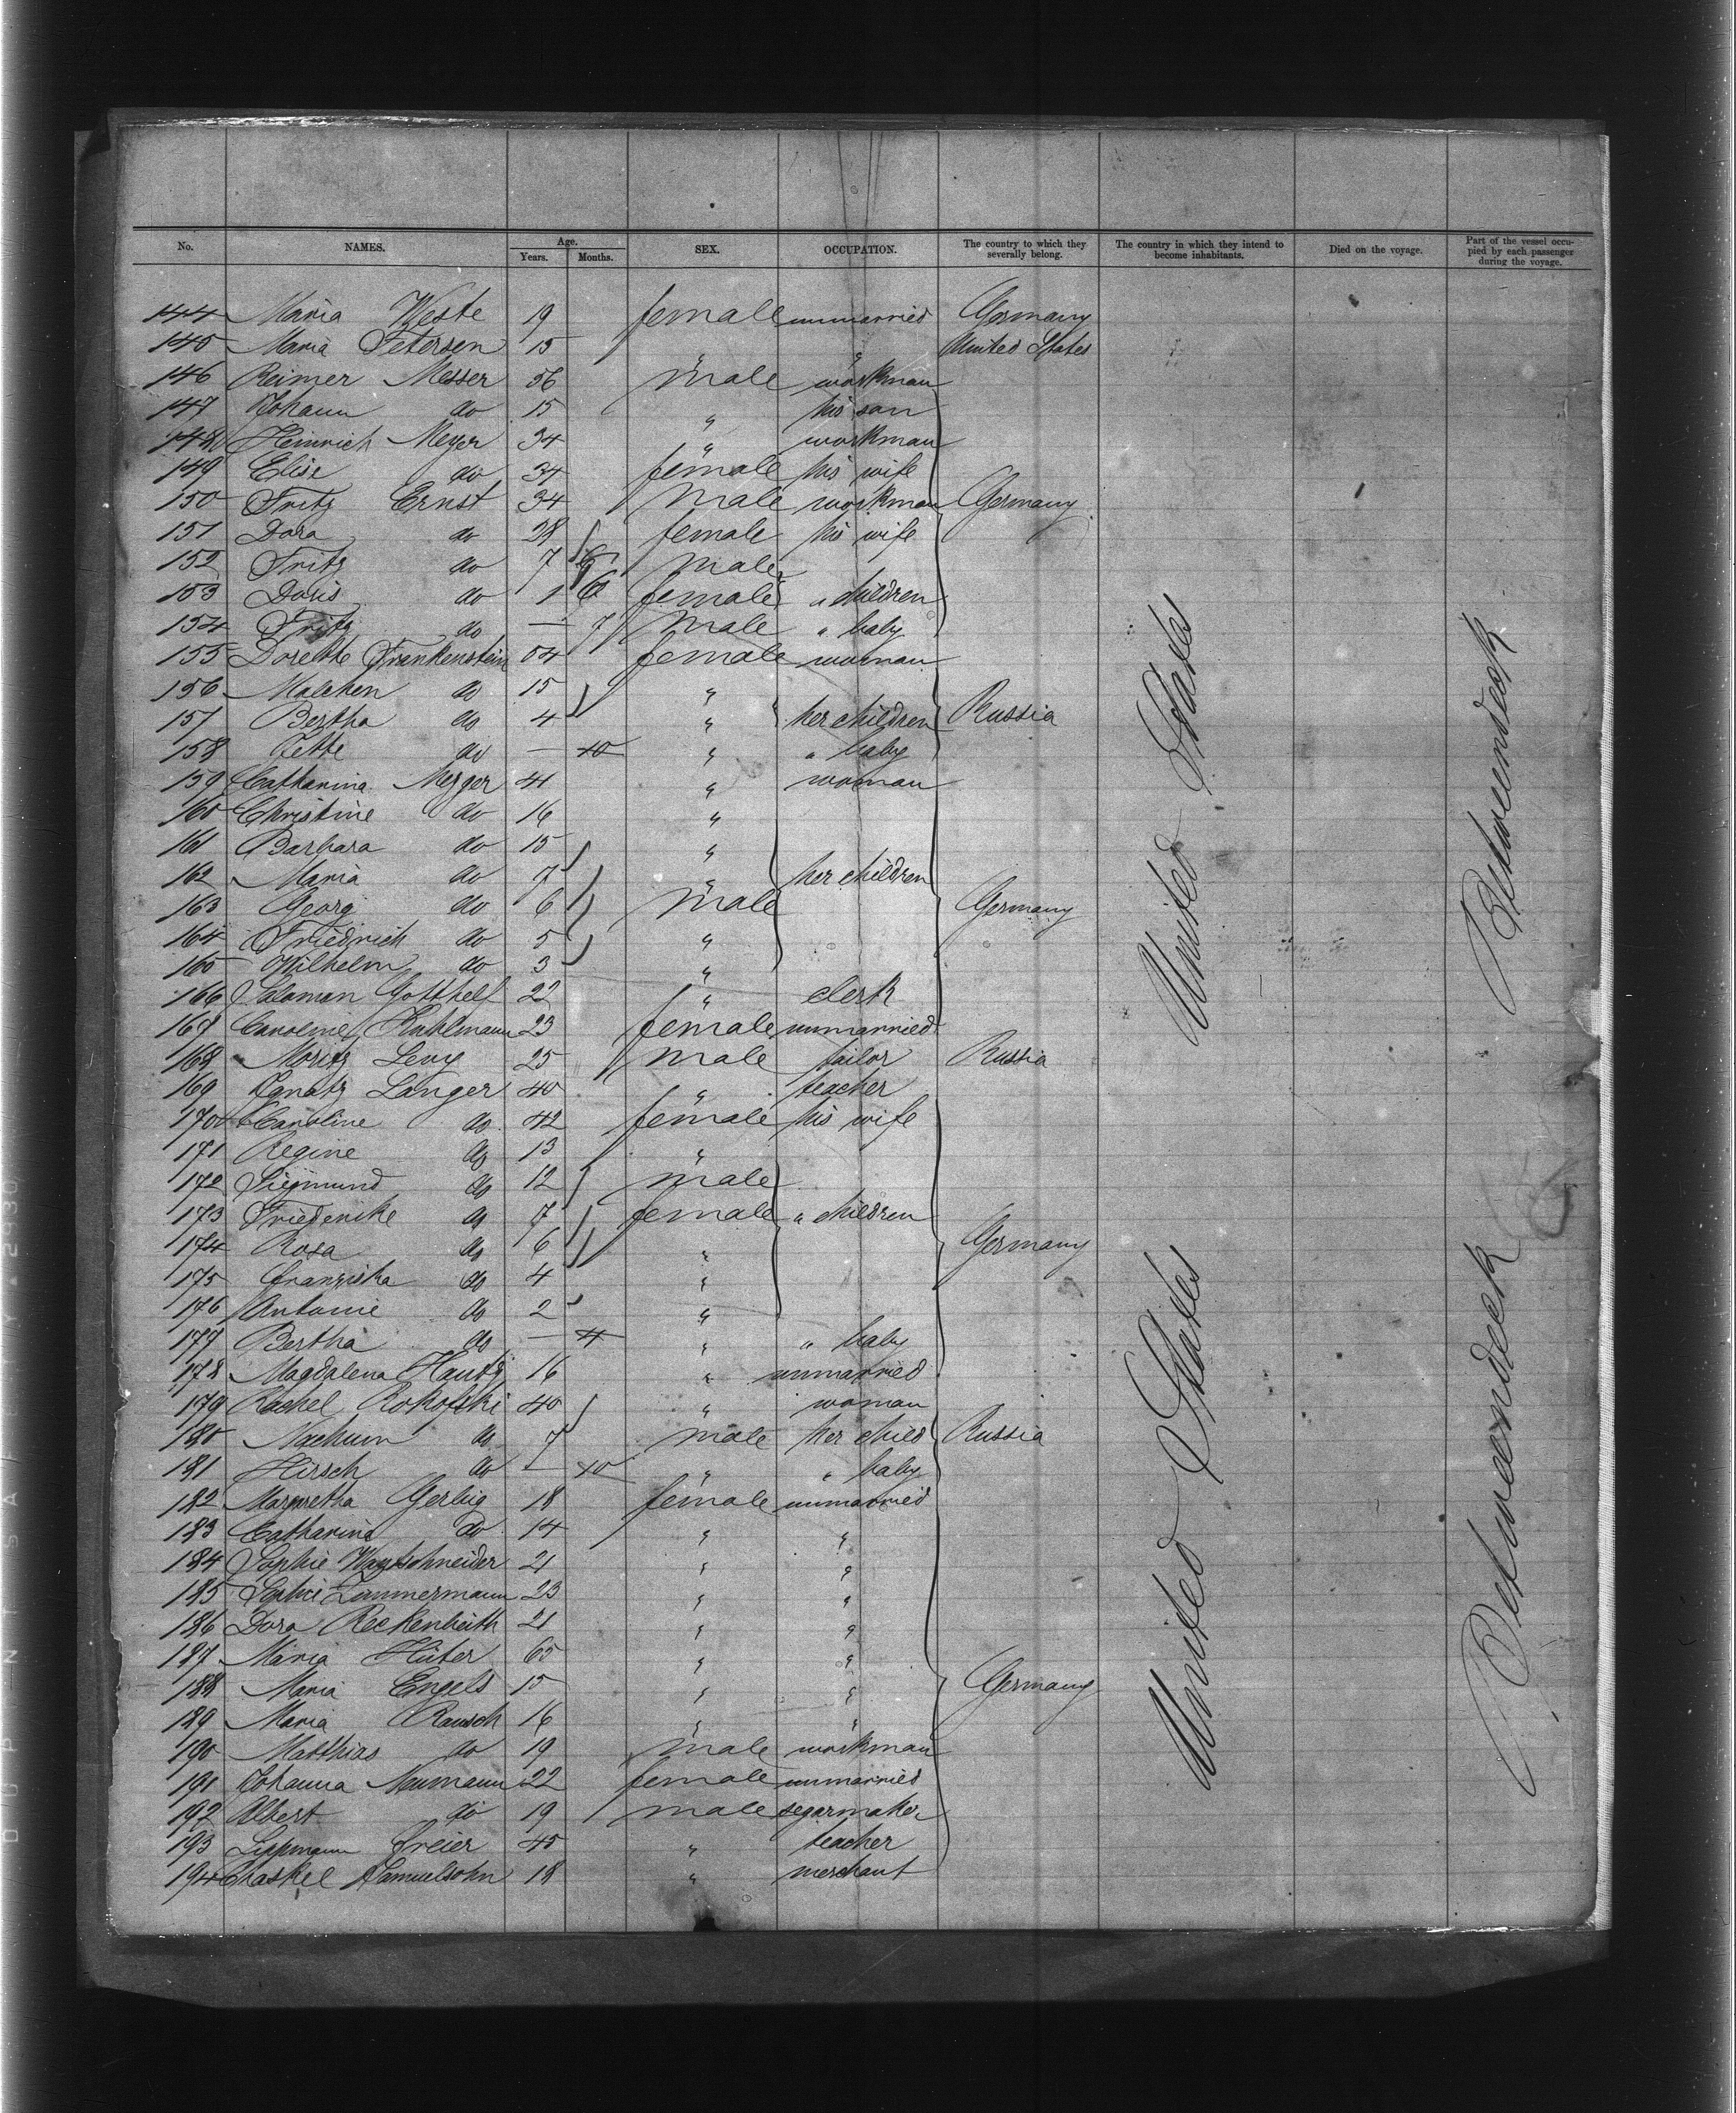 No. NAMES. Age. Years. Months. SEX. OCCUPATION. The country to which they severally belong. The country in which they intend to become inhabitants. Died on the voyage. Part of the vessel occupied by each passenger during the voyage.
144 Maria Weste 19 female unmarried Germany
145 Maria Petersen 15 " " United States
146 Reimer Messer 56 male workman
147 Johann do 15 " his son
148 Heinrich Meyer 34 " workman
149 Elise do 34 female his wife
150 Fritz Ernst 34 male workman Germany
151 Dora do 28 female his wife
152 Fritz do 7 male
153 Doris do 1 6 female " children
154 Fritz do — 7 male " baby
155 Dorette Frankenstein 54 female woman
156 Malchen do 15 "
157 Bertha do 4 " her children Russia
158 Jette do — 10 " " baby
159 Catharina Mezger 41 " woman
160 Christine do 16 "
161 Barbara do 15 "
162 Maria do 7 " her children
163 Georg do 6 male Germany
164 Friedrich do 5 "
165 Wilhelm do 3 "
166 Saloman Gotthelf 22 " clerk
167 Caroline Kuhlmann 23 female unmarried
168 Moritz Levy 25 male tailor Russia
169 Ignatz Langer 40 " teacher
170 Caroline do 42 female his wife
171 Regine do 13 "
172 Siegmund do 12 male
173 Friederike do 7 female " children
174 Rosa do 6 " Germany
175 Franziska do 4 "
176 Antonie do 2 "
177 Bertha do — 4 " " baby
178 Magdalena 16 " unmarried
179 Rachel Rokofski 40 " woman
180 Nachum do 7 male her child Russia
181 Hirsch do — 10 " " baby
182 Margretha Gerbig 18 female unmarried
183 Catharina do 14 " "
184 Sophie 21 " "
185 Sophie Zimmermann 23 " "
186 Dora 21 " "
187 Maria Hüter 65 " "
188 Maria Engels 15 " " Germany
189 Maria Rausch 16 " "
190 Matthias do 19 male workman
191 Johanna Neumann 22 female unmarried
192 Albert do 19 male segarmaker
193 Lippmann Freier 45 " teacher
194 Chaskel Samuelsohn 18 " merchant
United States
Betweendeck
United States
Betweendeck